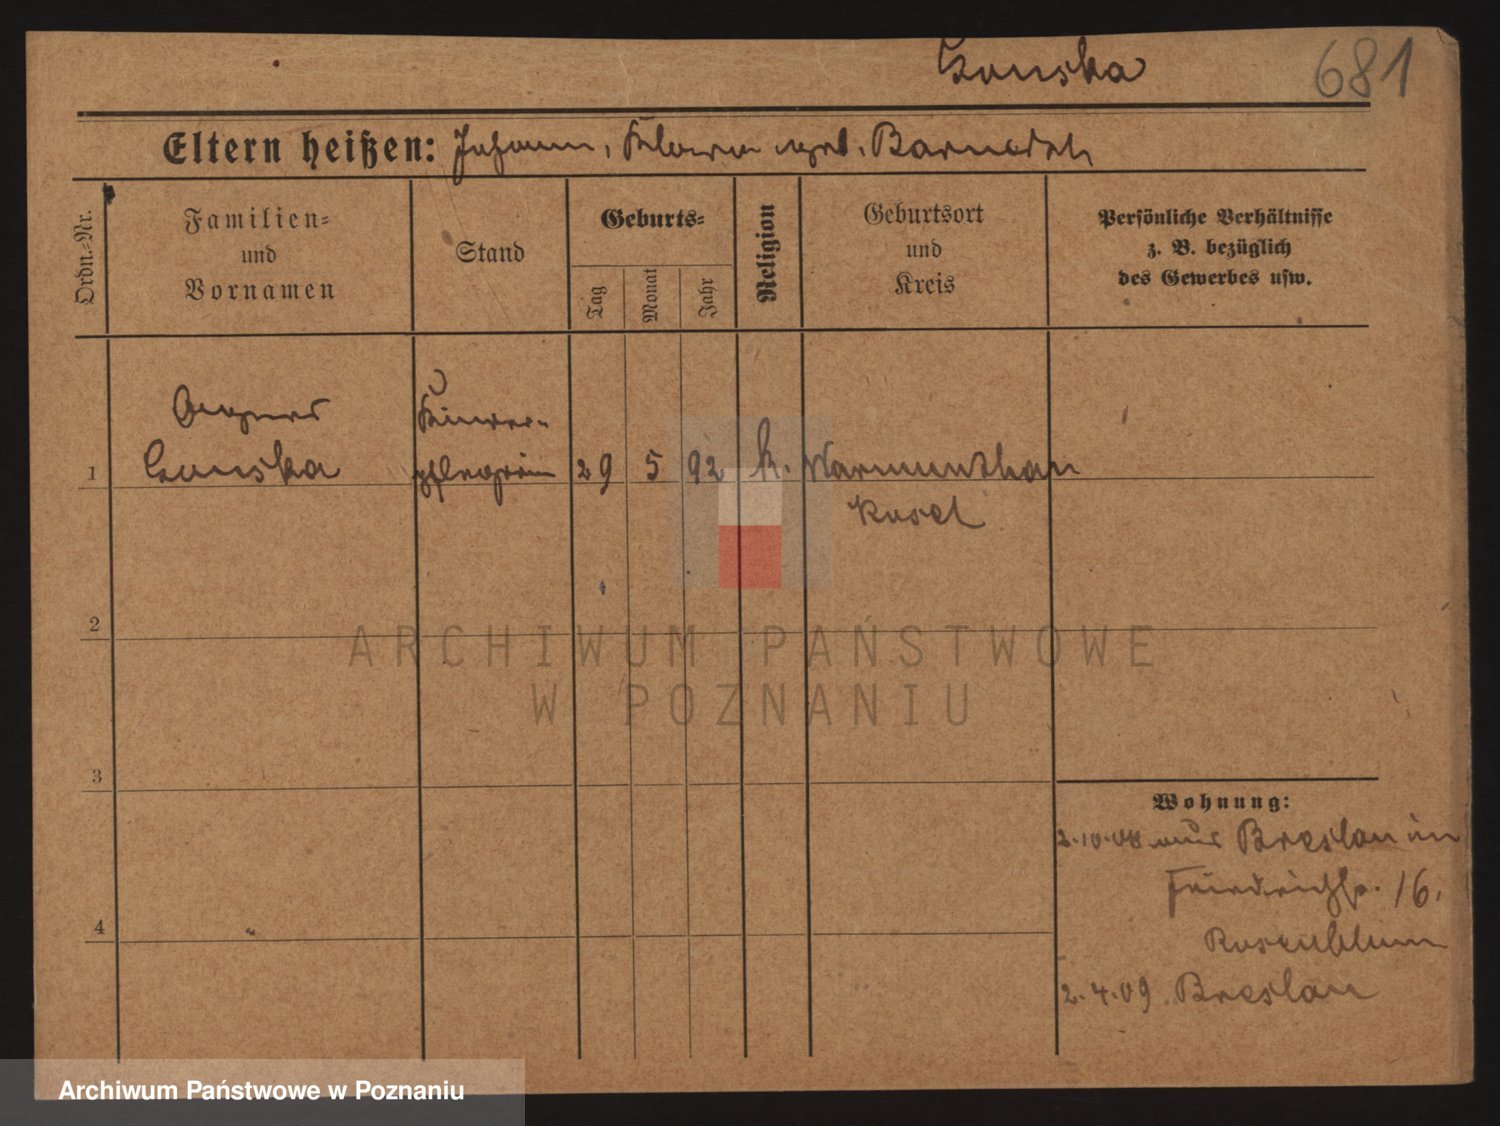 681
Eltern heißen: Johann, Klara geb.
Ordn.-Nr.
Familien-
und
Vornamen
Stand
Geburts-
Tag
Monat
Jahr
Religion
Geburtsort
und
Kreis
Persönliche Verhältnisse
z. B. bezüglich
des Gewerbes usw.
Agnes
Kinder-
1
pflegerin 29 5 92 k.
Kosel
2
ARCHIWUM PAŃSTWOWE
W POZNANIU
3
Wohnung:
2.10.08 aus Breslau in
Friedrichstr. 16.
Rosenblum
4
2.4.09 Breslau
Archiwum Państwowe w Poznaniu